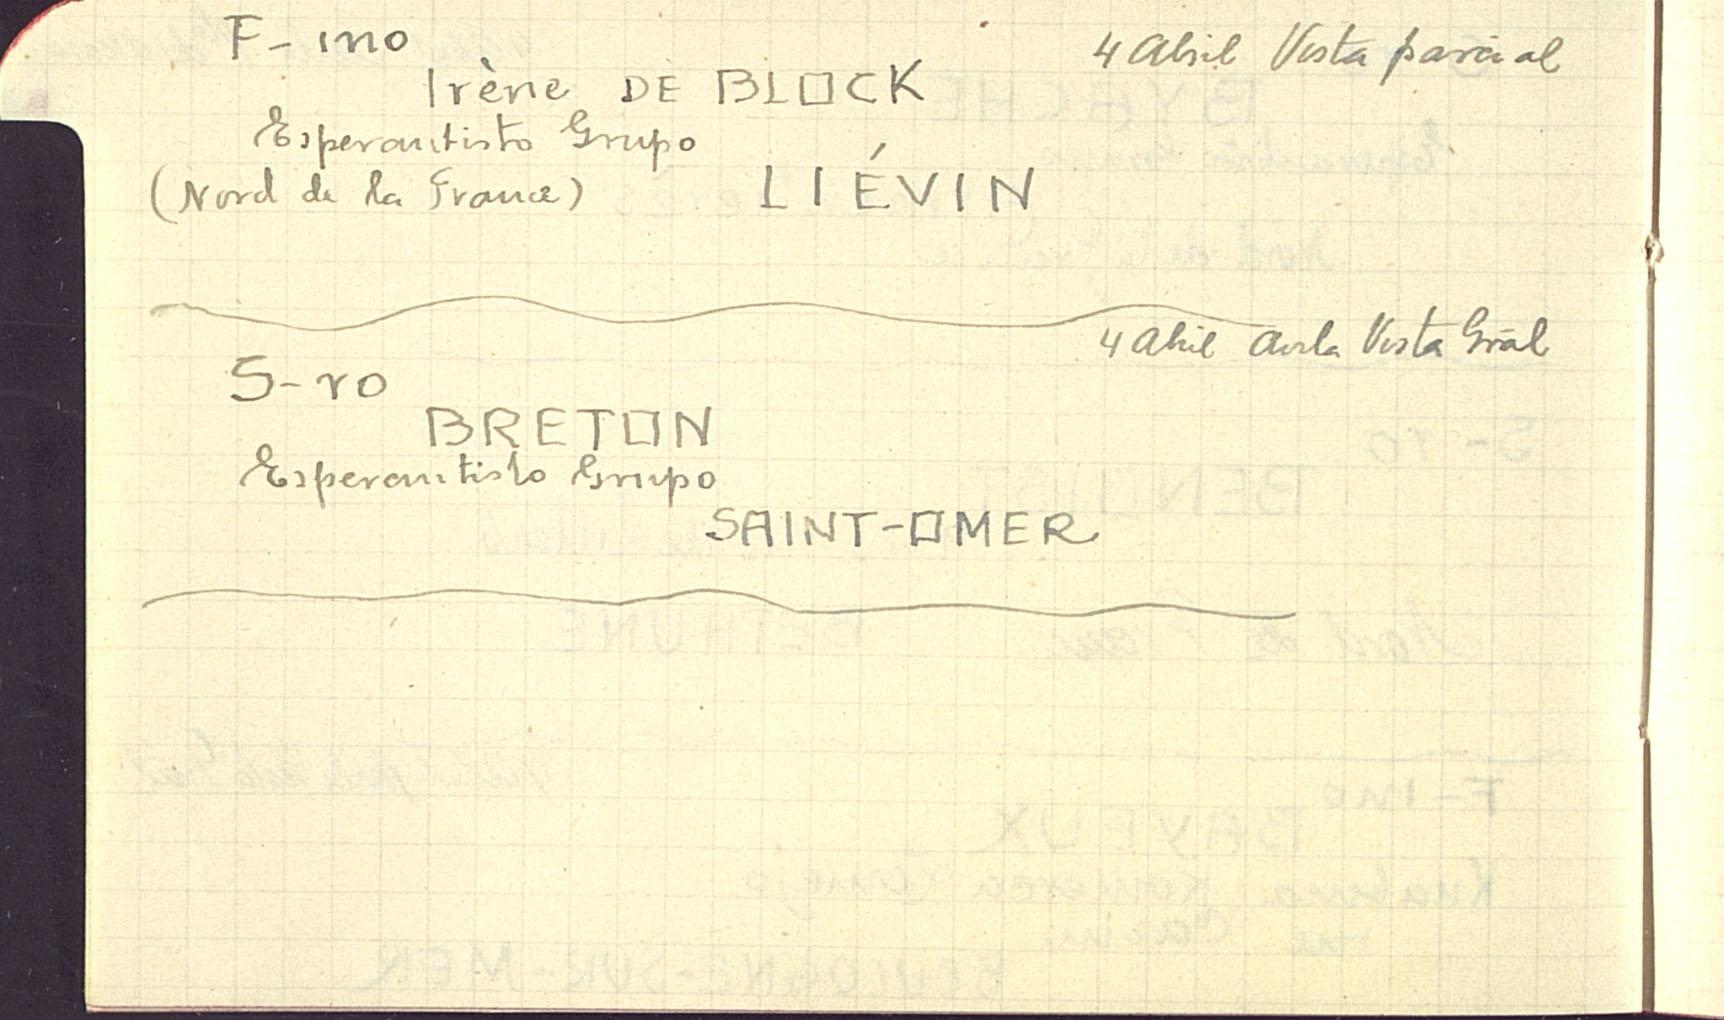 F-ino 4 Abril Vista parcial
Irène DE BLOCK
Esperantisto Grupo
(Nord de la France) LIÉVIN
4 Abril Avila Vista Gral
S-ro
BRETON
Esperantisto Grupo
SAINT-OMER